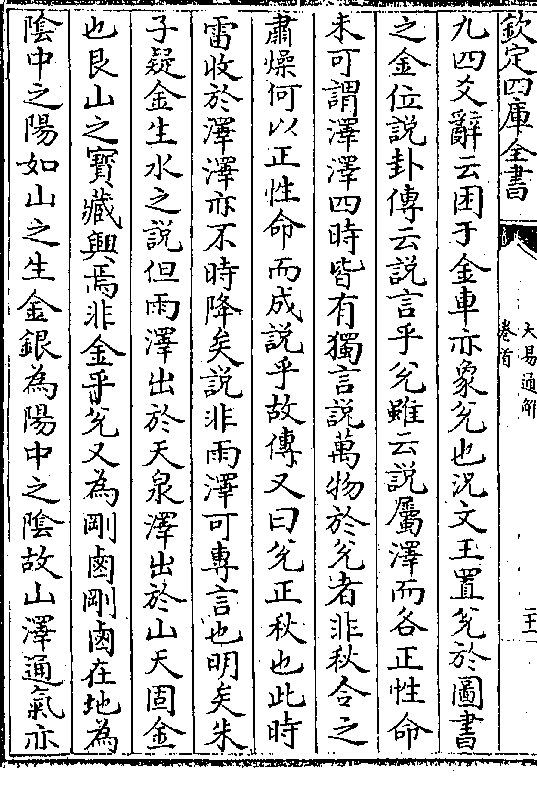 欽定四庫全書
大易通解
卷首
九四爻辭云困于金車亦象兊也况文王置兊於圖書
之金位說卦傳云說言乎兊雖云說屬澤而各正性命
未可謂澤澤四時皆有獨言說萬物於兊者非秋合之
肅燥何以正性命而成說乎故傳又曰兊正秋也此時
雷收於澤澤亦不時降矣說非雨澤可專言也明矣朱
子疑金生水之說但雨澤出於天泉澤出於山天固金
也艮山之寳藏興焉非金乎兊又為剛鹵剛鹵在地為
陰中之陽如山之生金銀為陽中之陰故山澤通氣亦